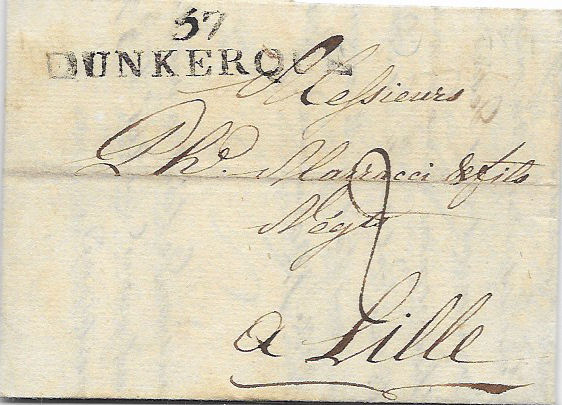 57
DUNKERQUE
Messieurs
Ph.e Marracci & fils
Négts
2
a Lille